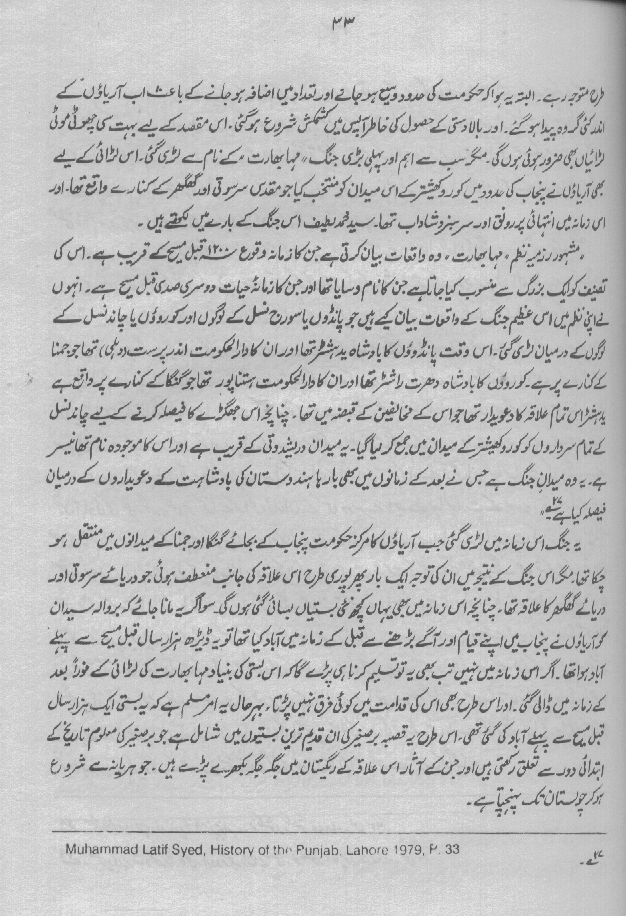 ۳۳
طرح متوجہ رہے۔ البتہ یہ ہوا کہ حکومت کی حدود وسیع ہو جانے اور تعداد میں اضافہ ہو جانے کے باعث اب آریاؤں کے
اندر کئی گروہ پیدا ہو گئے۔ اور بالادستی کے حصول کی خاطر آپس میں کشمکش شروع ہو گئی۔ اس مقصد کے لیے بہت سی چھوٹی موٹی
لڑائیاں بھی ضرور ہوئی ہوں گی۔ مگر سب سے اہم اور پہلی بڑی جنگ "مہا بھارت" کے نام سے لڑی گئی۔ اس لڑائی کے لیے
بھی آریاؤں نے پنجاب کی حدود میں کوروکھیشتر کے اس میدان کو منتخب کیا جو مقدس سرسوتی اور گھگھر کے کنارے واقع تھا۔ اور
اس زمانہ میں انتہائی پر رونق اور سرسبز و شاداب تھا۔ سید محمد لطیف اس جنگ کے بارے میں لکھتے ہیں۔
"مشہور رزمیہ نظم "مہا بھارت" وہ واقعات بیان کرتی ہے جن کا زمانہ وقوع ۱۲۰۰ قبل مسیح کے قریب ہے۔ اس کی
تصنیف کو ایک بزرگ سے منسوب کیا جاتا ہے جن کا نام وسایا تھا اور جن کا زمانہ حیات دوسری صدی قبل مسیح ہے۔ انہوں
نے اپنی نظم میں اس عظیم جنگ کے واقعات بیان کیے ہیں جو پانڈوں یا سورج نسل کے لوگوں اور کوروؤں یا چاند نسل کے
لوگوں کے درمیان لڑی گئی۔ اس وقت پانڈوؤں کا بادشاہ یدھشٹر تھا اور ان کا دارالحکومت اندر پرست (دہلی) تھا جو جمنا
کے کنارے پر ہے۔ کوروؤں کا بادشاہ دھرت راشٹر تھا اور ان کا دارالحکومت ہستنا پور تھا جو گنگا کے کنارے پر واقع ہے
یدھشٹر اس تمام علاقہ کا دعویدار تھا جو اس کے مخالفین کے قبضہ میں تھا۔ چنانچہ اس جھگڑے کا فیصلہ کرنے کے لیے چاند نسل
کے تمام سرداروں کو کوروکھیشتر کے میدان میں جمع کر لیا گیا۔ یہ میدان دریشدوتی کے قریب ہے اور اس کا موجودہ نام تھانیسر
ہے۔ یہ وہ میدان جنگ ہے جس نے بعد کے زمانوں میں بھی بارہا ہندوستان کی بادشاہت کے دعویداروں کے درمیان
فیصلہ کیا ہے"۲۷؎
یہ جنگ اس زمانہ میں لڑی گئی جب آریاؤں کا مرکز حکومت پنجاب کے بجائے گنگا اور جمنا کے میدانوں میں منتقل ہو
چکا تھا۔ مگر اس جنگ کے نتیجہ میں ان کی توجہ ایک بار پھر پوری طرح اس علاقہ کی جانب منعطف ہوئی جو دریائے سرسوتی اور
دریائے گھگھر کا علاقہ تھا۔ چنانچہ اس زمانہ میں بھی یہاں کچھ نئی بستیاں بسائی گئی ہوں گی۔ سو اگر یہ مانا جائے کہ بروالہ سیدان
کو آریاؤں نے پنجاب میں اپنے قیام اور آگے بڑھنے سے قبل کے زمانہ میں آباد کیا تھا تو یہ ڈیڑھ ہزار سال قبل مسیح سے پہلے
آباد ہوا تھا۔ اگر اس زمانہ میں نہیں تب بھی یہ تو تسلیم کرنا ہی پڑے گا کہ اس بستی کی بنیاد مہا بھارت کی لڑائی کے فوراً بعد
کے زمانہ میں ڈالی گئی۔ اور اس طرح بھی اس کی قدامت میں کوئی فرق نہیں پڑتا۔ بہرحال یہ امر مسلم ہے کہ یہ بستی ایک ہزار سال
قبل مسیح سے پہلے آباد کی گئی تھی۔ اس طرح یہ قصبہ برصغیر کی ان قدیم ترین بستیوں میں شامل ہے جو برصغیر کی معلوم تاریخ کے
ابتدائی دور سے تعلق رکھتی ہیں اور جن کے آثار اس علاقہ کے ریگستان میں جگہ جگہ بکھرے پڑے ہیں۔ جو ہریانہ سے شروع
ہو کر چولستان تک پہنچتا ہے۔
۲۷؎۔ Muhammad Latif Syed, History of the Punjab, Lahore 1979, P. 33